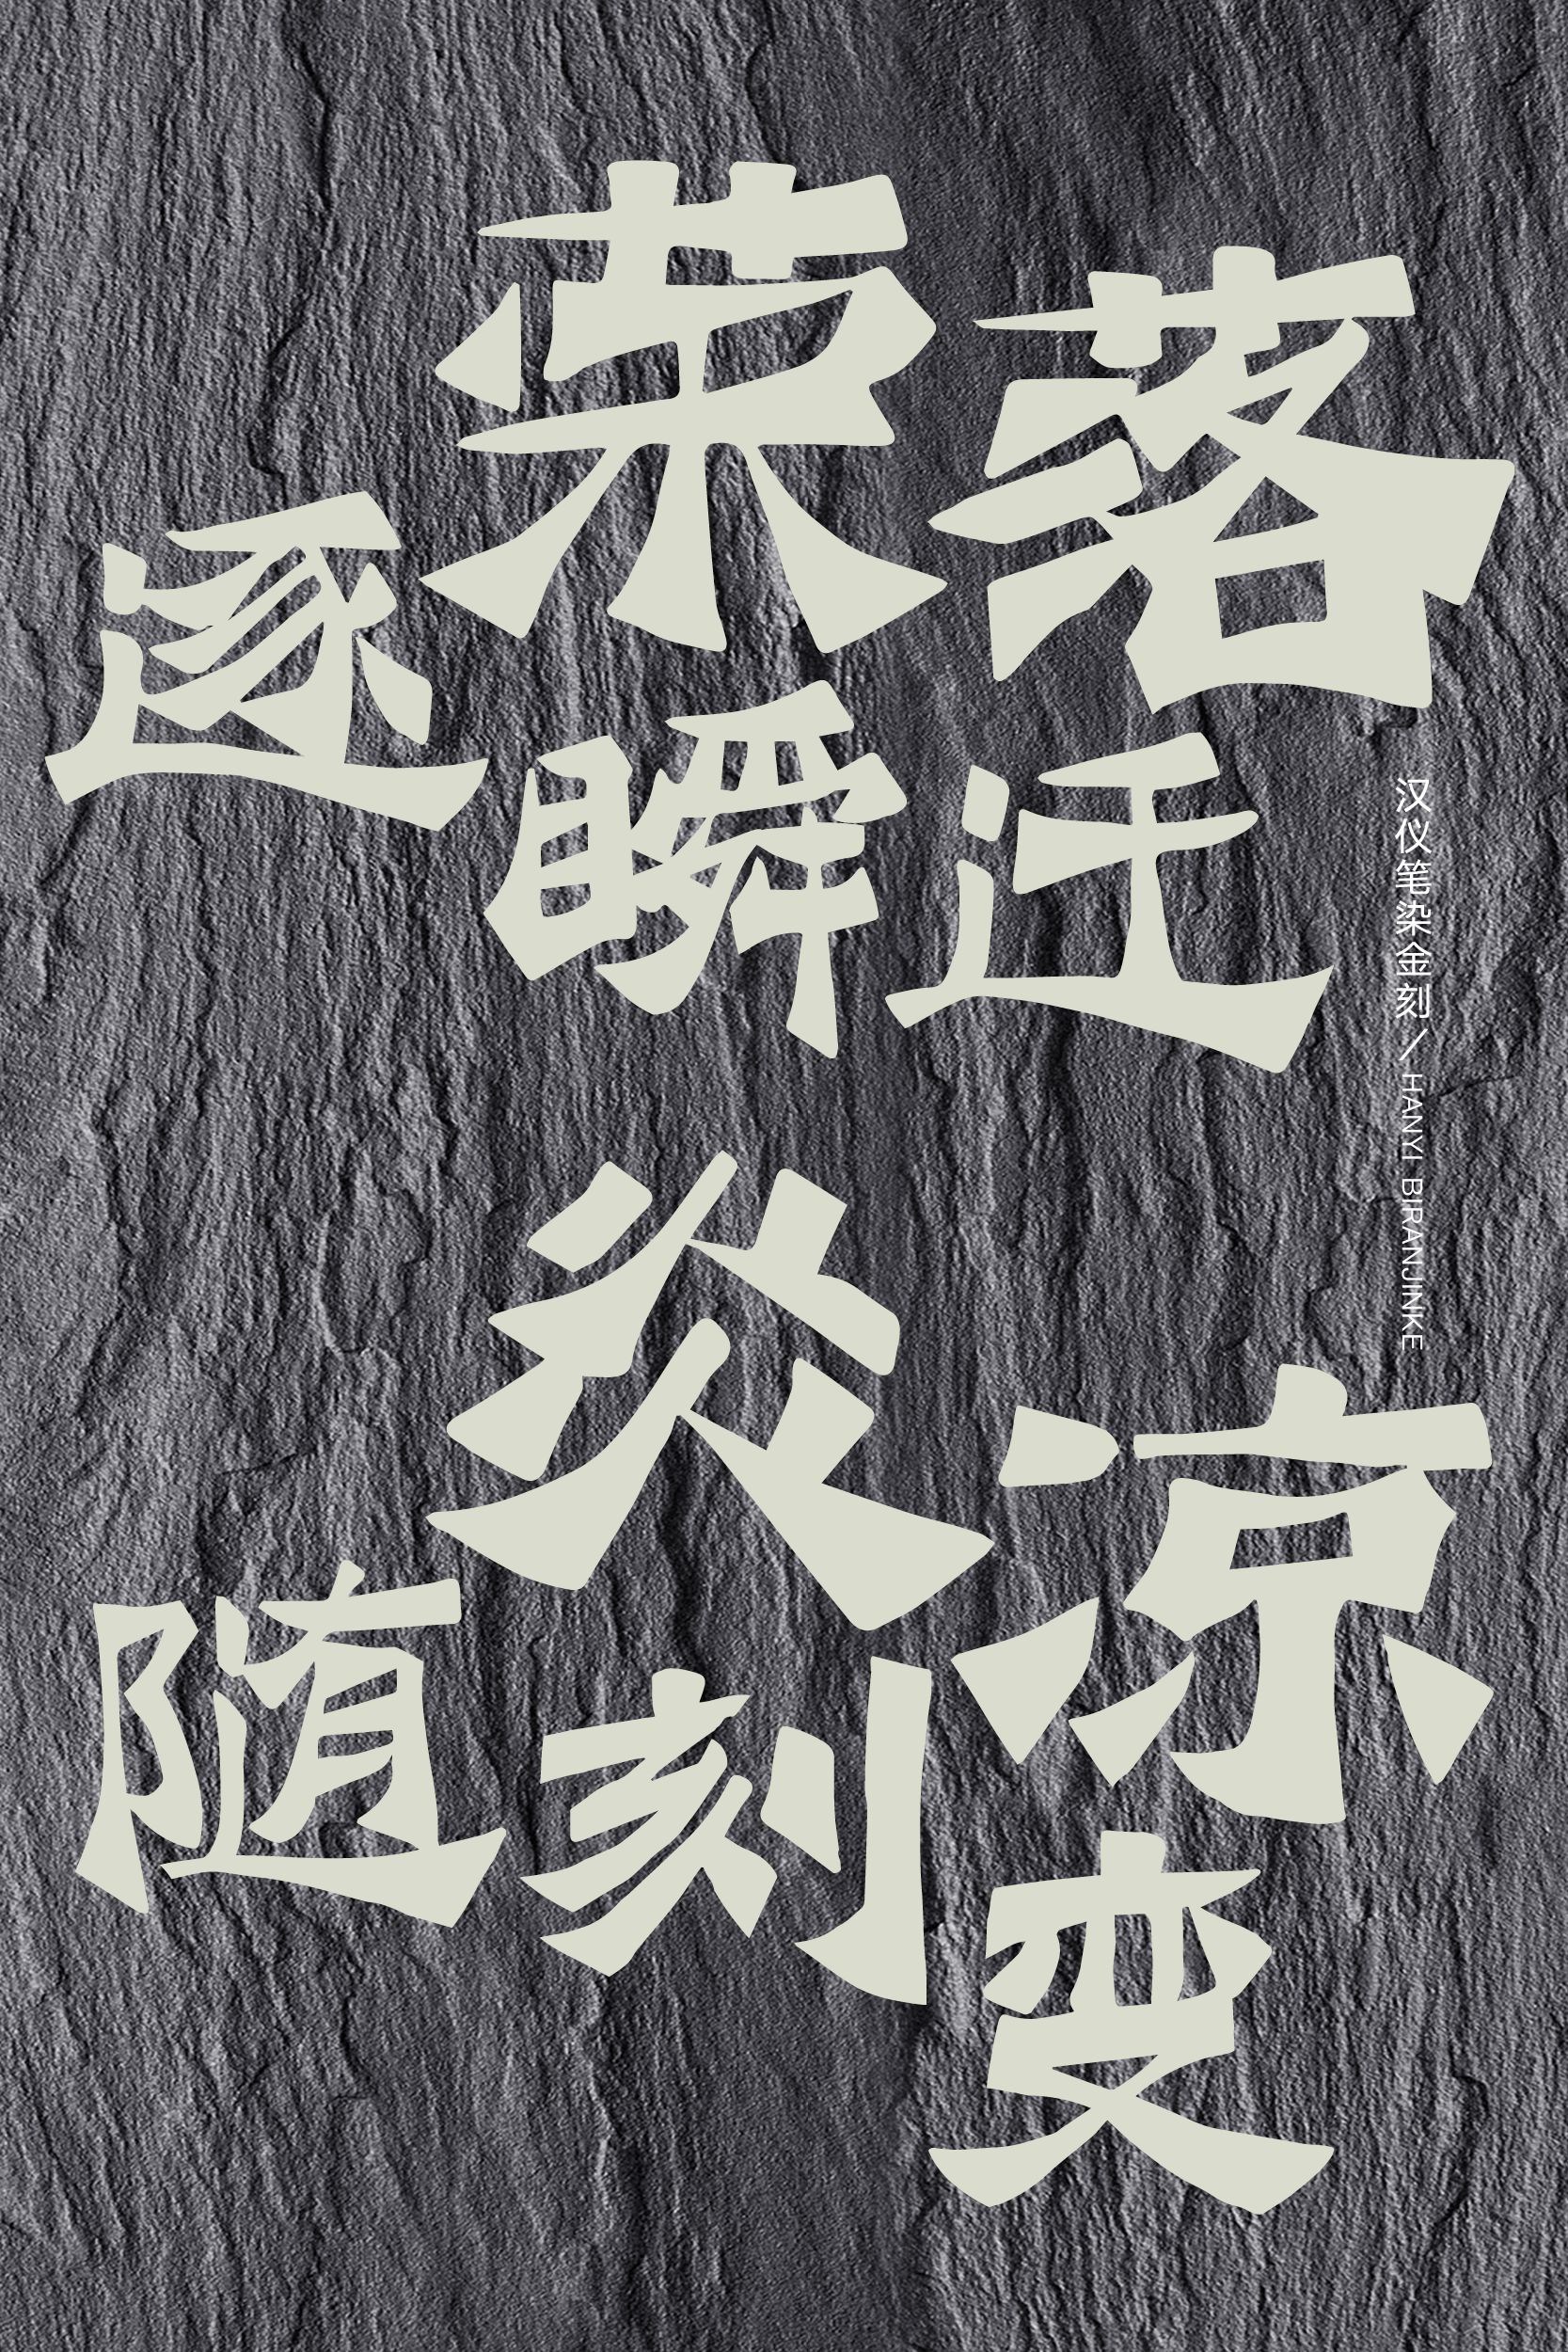 荣落
逐瞬迁
炎凉
随刻变
汉仪笔染金刻／HANYI BIRANJINKE